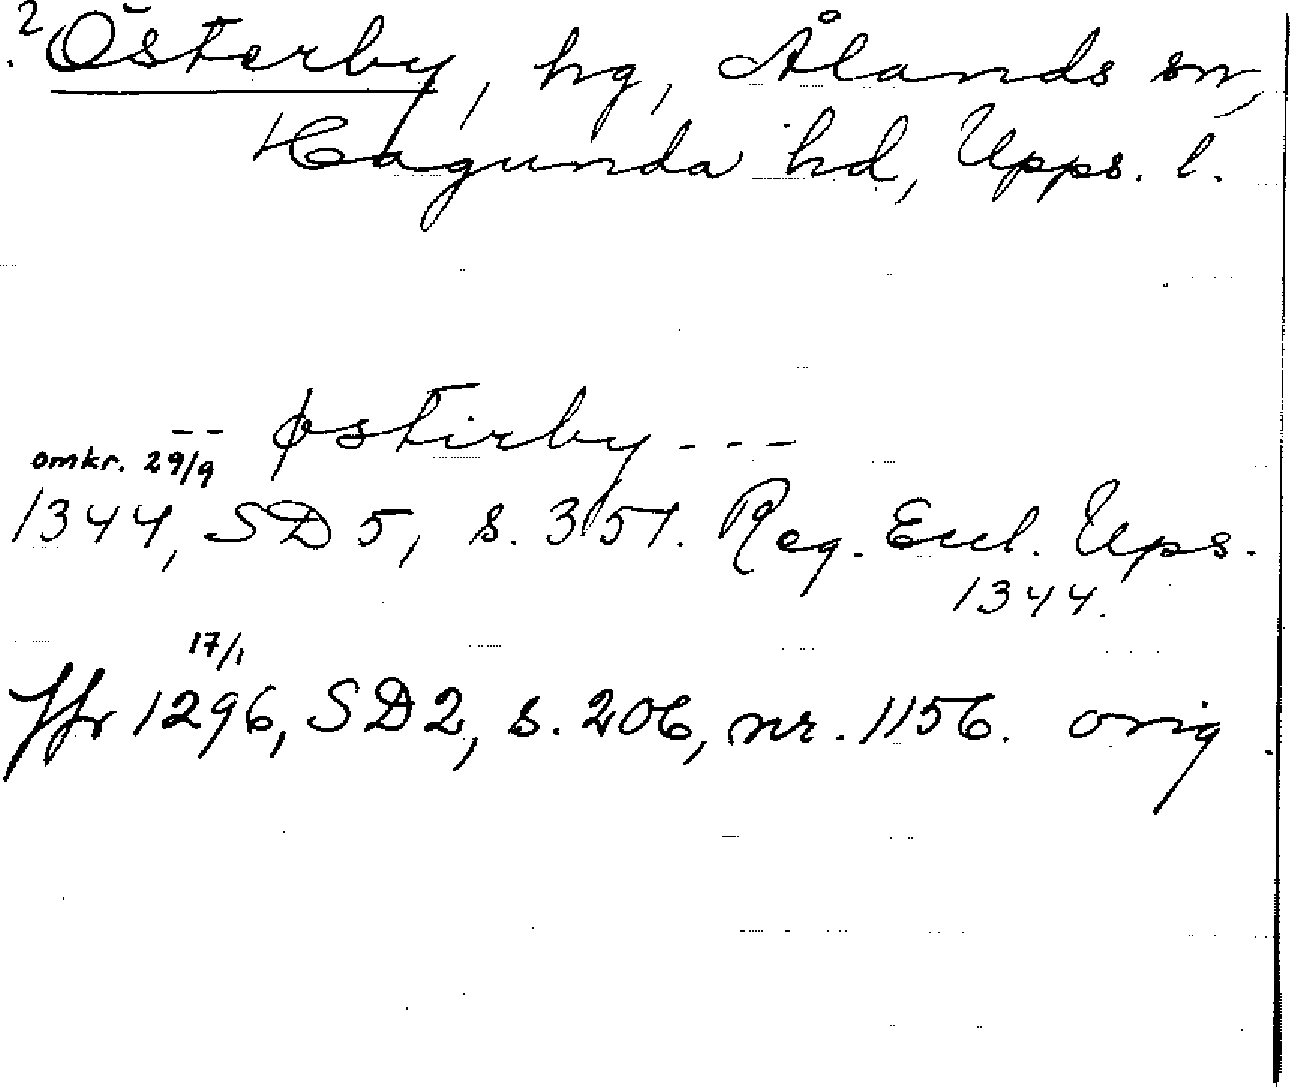 2 Österby, hg, Ålands sn,
Hagunda hd, Upps. l.
-- østirby---
omkr. 29/9
1344, SD 5, s. 351. Reg. Eccl. Ups.
1344.
17/1
Jfr 1296, SD 2, s. 206, nr. 1156. orig